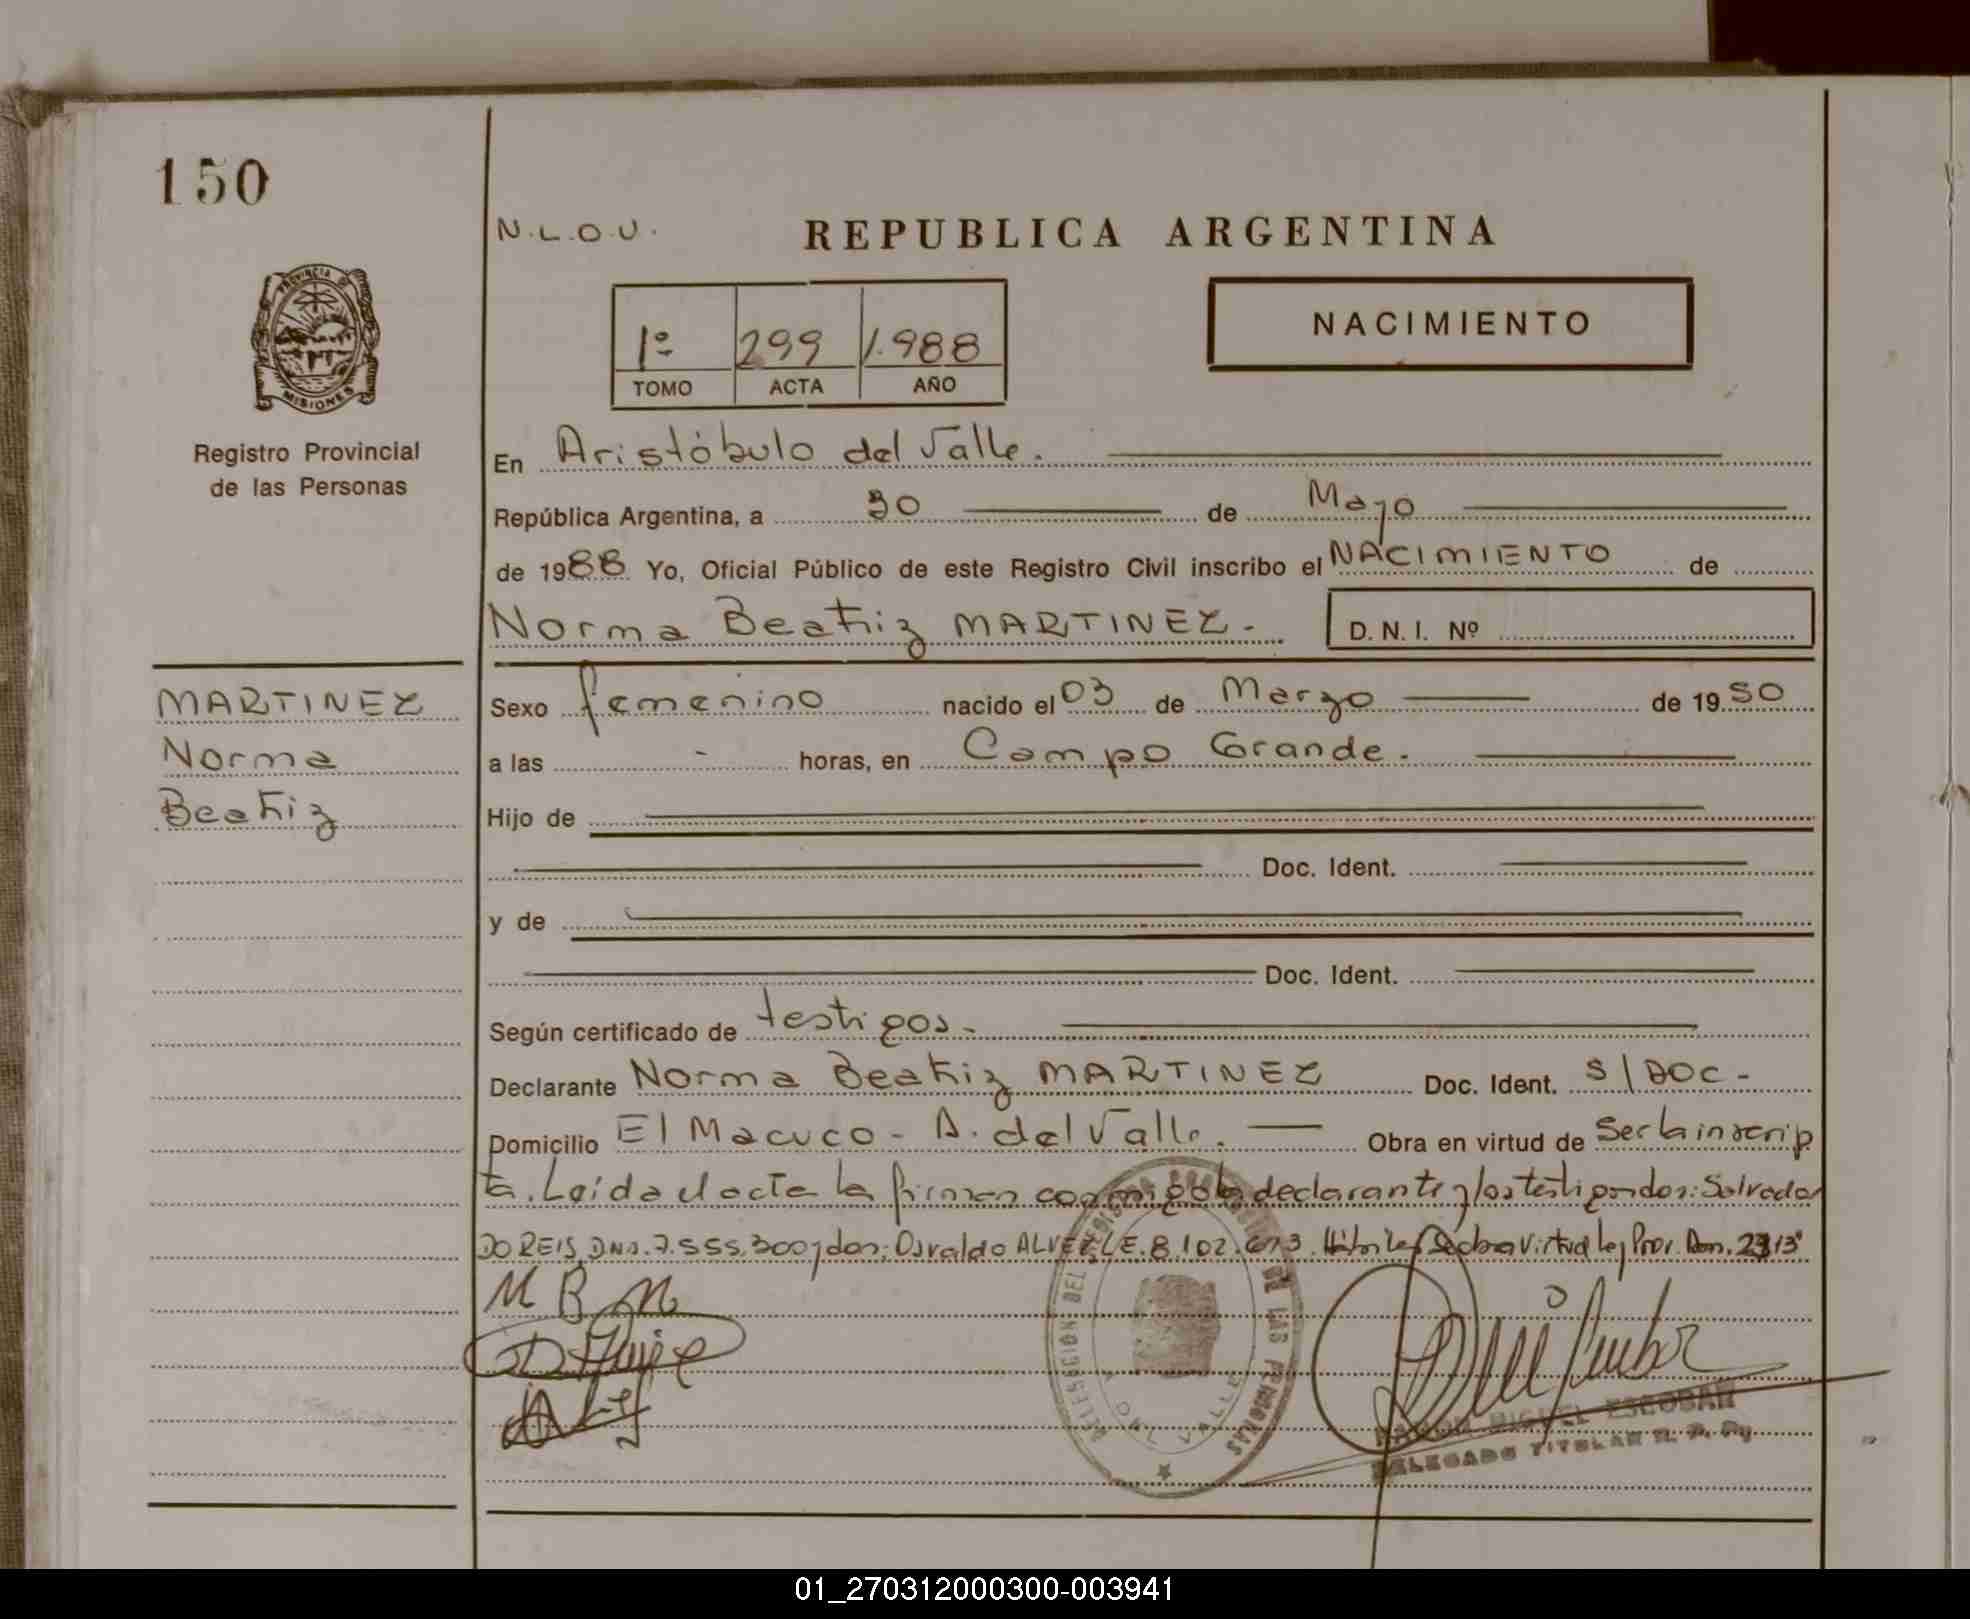 150
N.L.O.U.
REPUBLICA ARGENTINA
PROVINCIA DE
MISIONES
Registro Provincial
de las Personas
1º 299 1.988
TOMO ACTA AÑO
NACIMIENTO
En Aristóbulo del Valle.
República Argentina, a 30 de Mayo
de 1988 Yo, Oficial Público de este Registro Civil inscribo el NACIMIENTO de
Norma Beatriz MARTINEZ.- D. N. I. Nº
MARTINEZ
Norma
Beatriz
Sexo femenino nacido el 03 de Marzo de 1950
a las - horas, en Campo Grande.
Hijo de
Doc. Ident.
y de
Doc. Ident.
Según certificado de testigos.-
Declarante Norma Beatriz MARTINEZ Doc. Ident. S/DOC-
Domicilio El Macuco - A. del Valle. Obra en virtud de Ser la inscrip
ta. Leída el acta la firman conmigo la declarante y los testigos don: Salvador
DO REIS, DNI. 7.555.300 y don: Osvaldo ALVEZ LE. 8.102. Obra Virtud Ley Prov.
M B M
DELEGACION DEL REGISTRO PROVINCIAL DE LAS PERSONAS
A. DEL VALLE
RAMON MIGUEL ESCOBAR
DELEGADO TITULAR R. P. P.
01_270312000300-003941